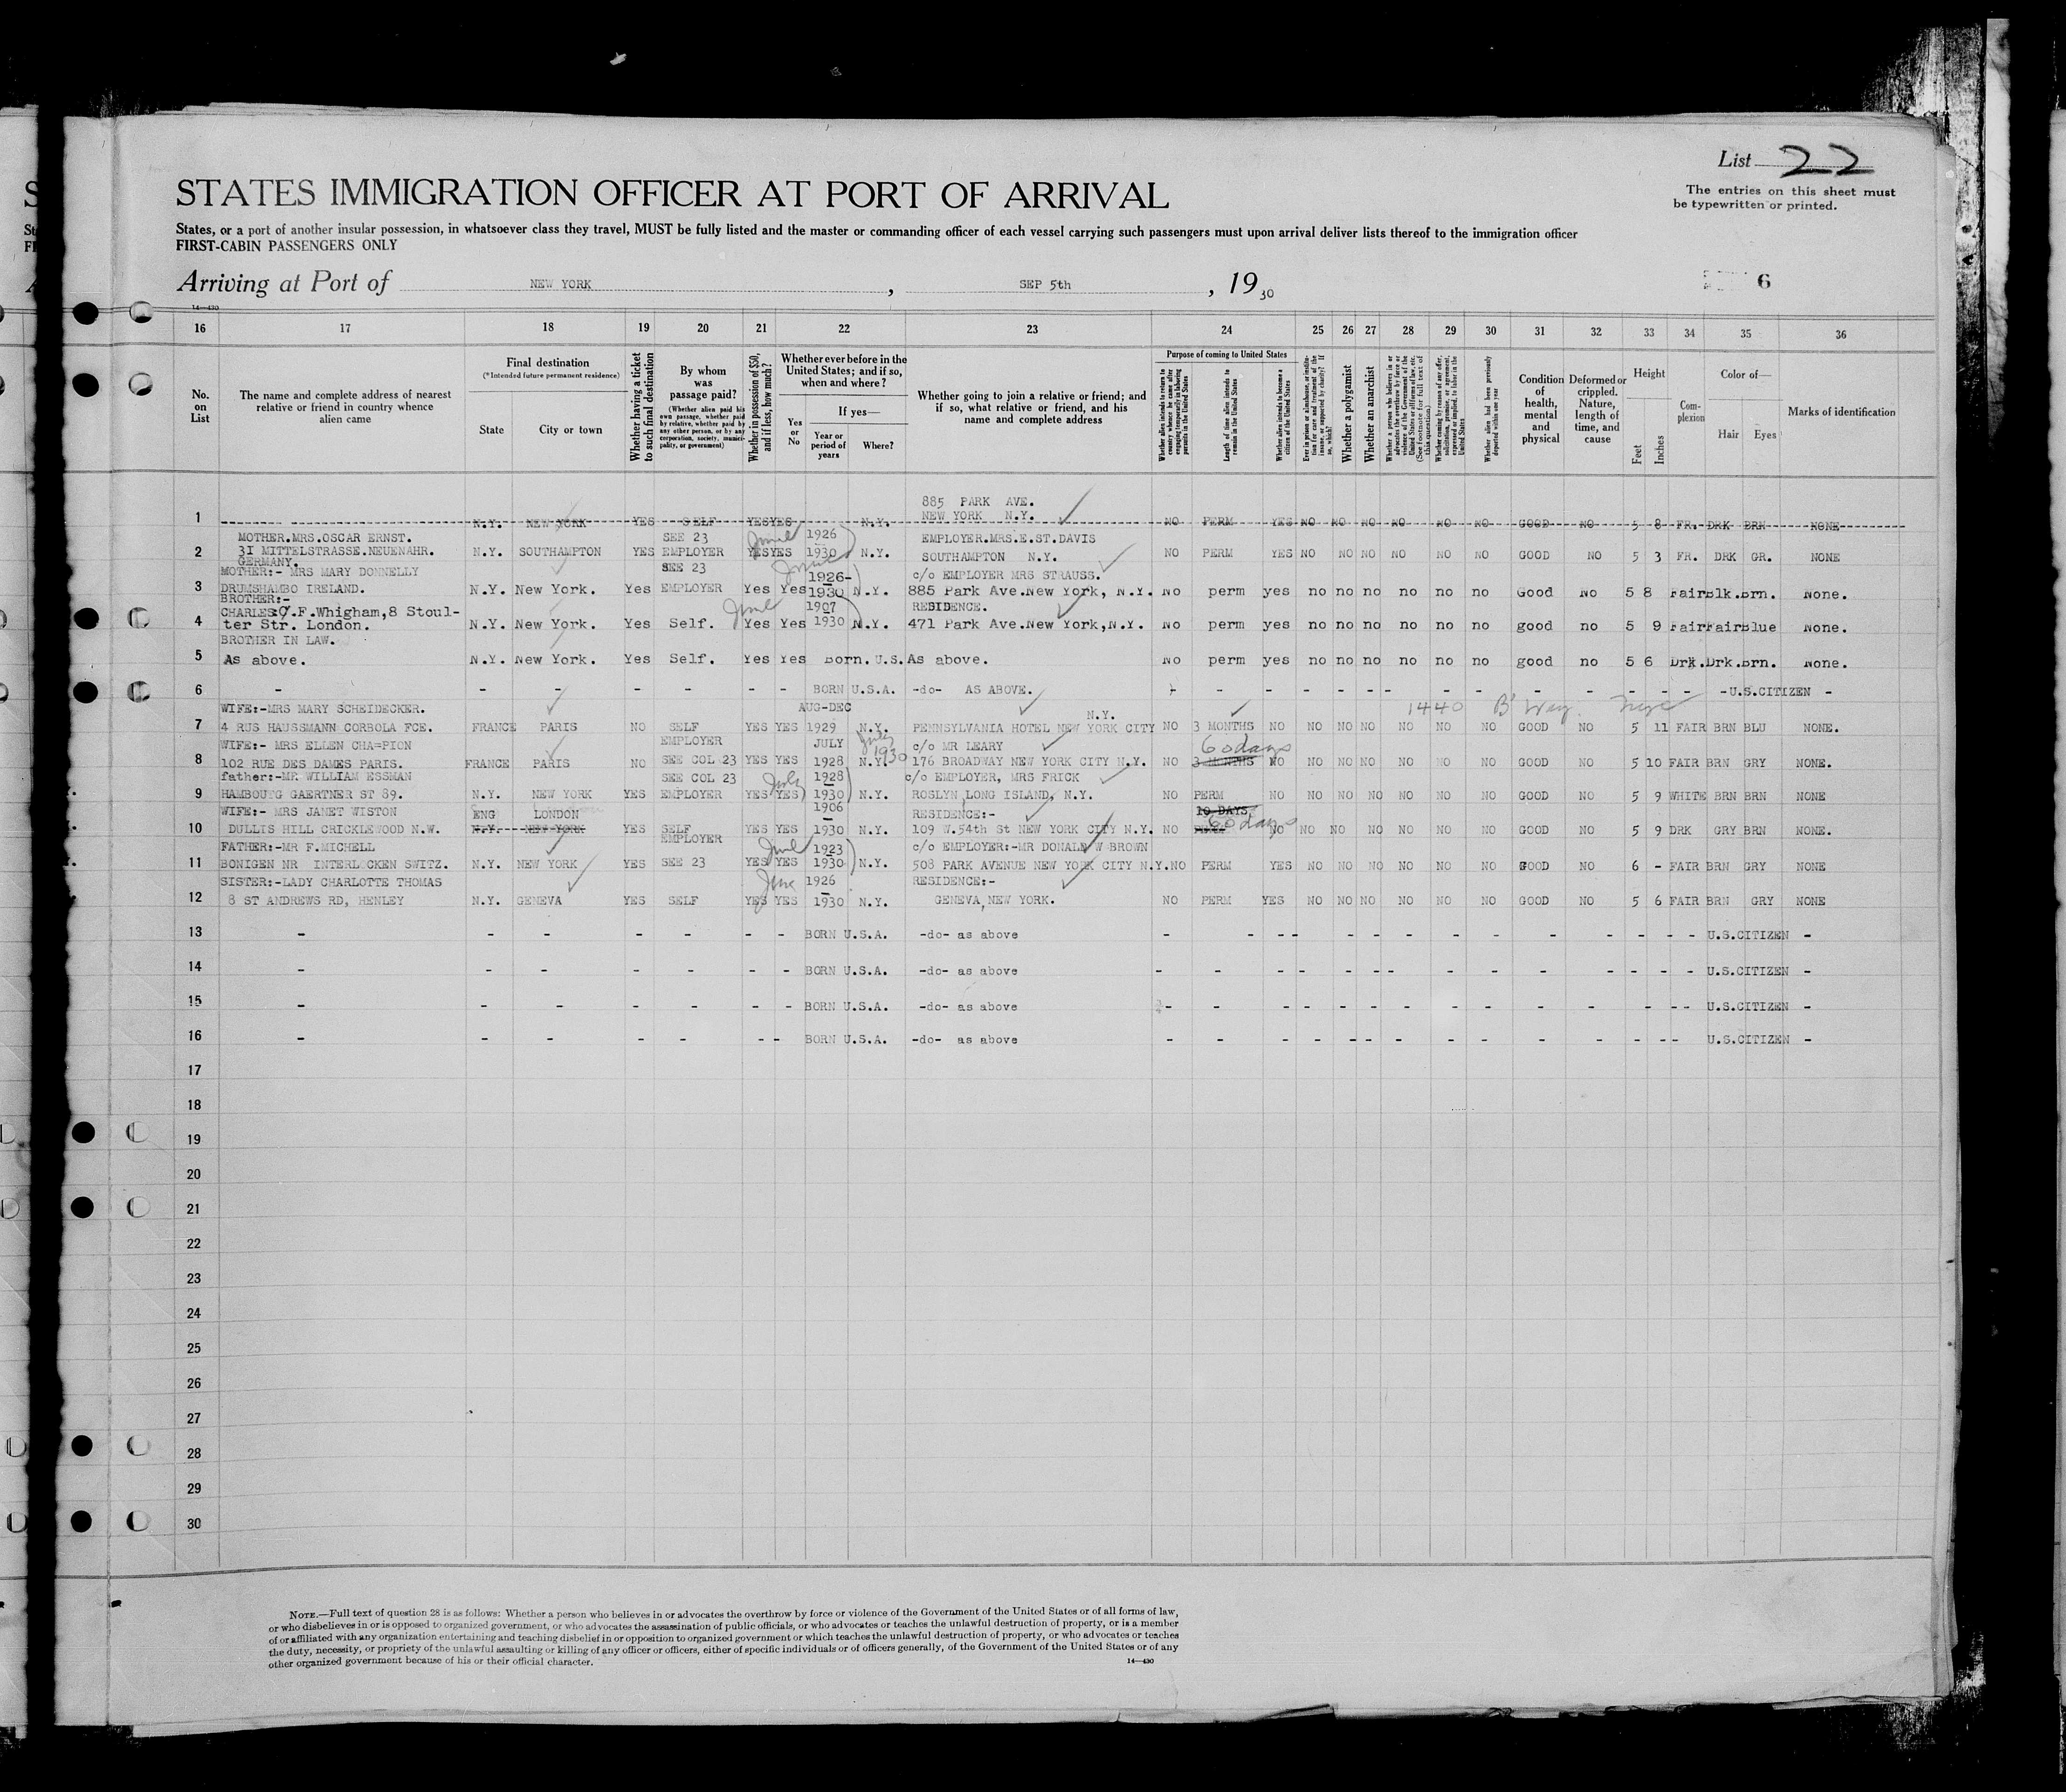 List 22
The entries on this sheet must
be typewritten or printed.
STATES IMMIGRATION OFFICER AT PORT OF ARRIVAL
States, or a port of another insular possession, in whatsoever class they travel, MUST be fully listed and the master or commanding officer of each vessel carrying such passengers must upon arrival deliver lists thereof to the immigration officer
FIRST-CABIN PASSENGERS ONLY
Arriving at Port of NEW YORK, SEP 5th, 1930
6
14—430
16 17 18 19 20 21 22 23 24 25 26 27 28 29 30 31 32 33 34 35 36
No. on List
The name and complete address of nearest relative or friend in country whence alien came
Final destination
(*Intended future permanent residence)
State
City or town
Whether having a ticket to such final destination
By whom was passage paid?
(Whether alien paid his own passage, whether paid by relative, whether paid by any other person, or by any corporation, society, municipality, or government)
Whether in possession of $50, and if less, how much?
Whether ever before in the United States; and if so, when and where?
Yes or No
If yes—
Year or period of years
Where?
Whether going to join a relative or friend; and if so, what relative or friend, and his name and complete address
Purpose of coming to United States
Whether alien intends to return to country whence he came after engaging temporarily in laboring pursuits in the United States
Length of time alien intends to remain in the United States
Whether alien intends to become a citizen of the United States
Ever in prison or almshouse, or institution for care and treatment of the insane, or supported by charity? If so, which?
Whether a polygamist
Whether an anarchist
Whether coming by reason of any offer, solicitation, promise, or agreement, expressed or implied, to labor in the United States
Whether alien had been previously deported within one year
Condition of health, mental and physical
Deformed or crippled. Nature, length of time, and cause
Height
Feet
Inches
Complexion
Color of—
Hair
Eyes
Marks of identification
885 PARK AVE.
1 N.Y. NEW YORK YES SELF YES YES N.Y. NEW YORK N.Y. NO PERM YES NO NO NO NO NO NO GOOD NO 5 8 FR. DRK BRN NONE
MOTHER.MRS.OSCAR ERNST. SEE 23 1926 EMPLOYER.MRS.E.ST.DAVIS
2 31 MITTELSTRASSE.NEUENAHR. N.Y. SOUTHAMPTON YES EMPLOYER YES YES 1930 N.Y. SOUTHAMPTON N.Y. NO PERM YES NO NO NO NO NO NO GOOD NO 5 3 FR. DRK GR. NONE
GERMANY.
MOTHER:- MRS MARY DONNELLY SEE 23 1926- c/o EMPLOYER MRS STRAUSS.
3 DRUMSHAMBO IRELAND. N.Y. New York. Yes EMPLOYER Yes Yes 1930 N.Y. 885 Park Ave.New York, N.Y. No perm yes no no no no no no Good No 5 8 Fair Blk. Brn. None.
BROTHER:-
CHARLES F.Whigham,8 Stoul- 1907 RESIDENCE.
4 ter Str. London. N.Y. New York. Yes Self. Yes Yes 1930 N.Y. 471 Park Ave.New York,N.Y. No perm yes no no no no no no good no 5 9 Fair Fair Blue None.
BROTHER IN LAW.
5 As above. N.Y. New York. Yes Self. Yes Yes Born. U.S. As above. No perm yes no no no no no no good no 5 6 Drk. Drk. Brn. None.
6 - - - - - - - BORN U.S.A. -do- AS ABOVE. - - - - - - - - - - - - - - -U.S.CITIZEN -
WIFE:-MRS MARY SCHEIDECKER. AUG-DEC N.Y. 1440 B'Way. NYC
7 4 RUS HAUSSMANN CORBOLA FCE. FRANCE PARIS NO SELF YES YES 1929 N.Y. PENNSYLVANIA HOTEL NEW YORK CITY NO 3 MONTHS NO NO NO NO NO NO NO GOOD NO 5 11 FAIR BRN BLU NONE.
WIFE:- MRS ELLEN CHA=PION EMPLOYER JULY July 1930 c/o MR LEARY 60 days
8 102 RUE DES DAMES PARIS. FRANCE PARIS NO SEE COL 23 YES YES 1928 N.Y. 176 BROADWAY NEW YORK CITY N.Y. NO 3 MONTHS NO NO NO NO NO NO NO GOOD NO 5 10 FAIR BRN GRY NONE.
father:-MR WILLIAM ESSMAN SEE COL 23 July 1928 c/o EMPLOYER, MRS FRICK
9 HAMBOUTG GAERTNER ST 89. N.Y. NEW YORK YES EMPLOYER YES YES 1930 N.Y. ROSLYN,LONG ISLAND, N.Y. NO PERM NO NO NO NO NO NO NO GOOD NO 5 9 WHITE BRN BRN NONE
WIFE:- MRS JANET WISTON ENG LONDON 1906 RESIDENCE:- 10 DAYS 60 days
10 DULLIS HILL CRICKLEWOOD N.W. N.Y. NEW YORK YES SELF YES YES 1930 N.Y. 109 W.54th St NEW YORK CITY N.Y. NO NO NO NO NO NO NO NO GOOD NO 5 9 DRK GRY BRN NONE.
FATHER:-MR F.MICHELL EMPLOYER 1923 c/o EMPLOYER:-MR DONALD W BROWN
11 BONIGEN NR INTERLOCKEN SWITZ. N.Y. NEW YORK YES SEE 23 YES YES 1930 N.Y. 508 PARK AVENUE NEW YORK CITY N.Y. NO PERM YES NO NO NO NO NO NO GOOD NO 6 - FAIR BRN GRY NONE
SISTER:-LADY CHARLOTTE THOMAS June 1926 RESIDENCE:-
12 8 ST ANDREWS RD, HENLEY N.Y. GENEVA YES SELF YES YES 1930 N.Y. GENEVA,NEW YORK. NO PERM YES NO NO NO NO NO NO GOOD NO 5 6 FAIR BRN GRY NONE
13 - - - - - - - BORN U.S.A. -do- as above - - - - - - - - - - - - - - - U.S.CITIZEN -
14 - - - - - - - BORN U.S.A. -do- as above - - - - - - - - - - - - - - - U.S.CITIZEN -
15 - - - - - - - BORN U.S.A. -do- as above - - - - - - - - - - - - - - U.S.CITIZEN -
16 - - - - - - - BORN U.S.A. -do- as above - - - - - - - - - - - - - - U.S.CITIZEN -
17
18
19
20
21
22
23
24
25
26
27
28
29
30
NOTE.—Full text of question 28 is as follows: Whether a person who believes in or advocates the overthrow by force or violence of the Government of the United States or of all forms of law,
or who disbelieves in or is opposed to organized government, or who advocates the assassination of public officials, or who advocates or teaches the unlawful destruction of property, or is a member
of or affiliated with any organization entertaining and teaching disbelief in or opposition to organized government or which teaches the unlawful destruction of property, or who advocates or teaches
the duty, necessity, or propriety of the unlawful assaulting or killing of any officer or officers, either of specific individuals or of officers generally, of the Government of the United States or of any
other organized government because of his or their official character.
14—430